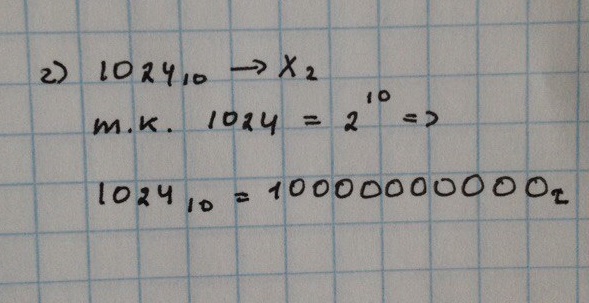 г) 1024₁₀ → X₂
т.к. 1024 = 2¹⁰ =>
1024₁₀ = 10000000000₂